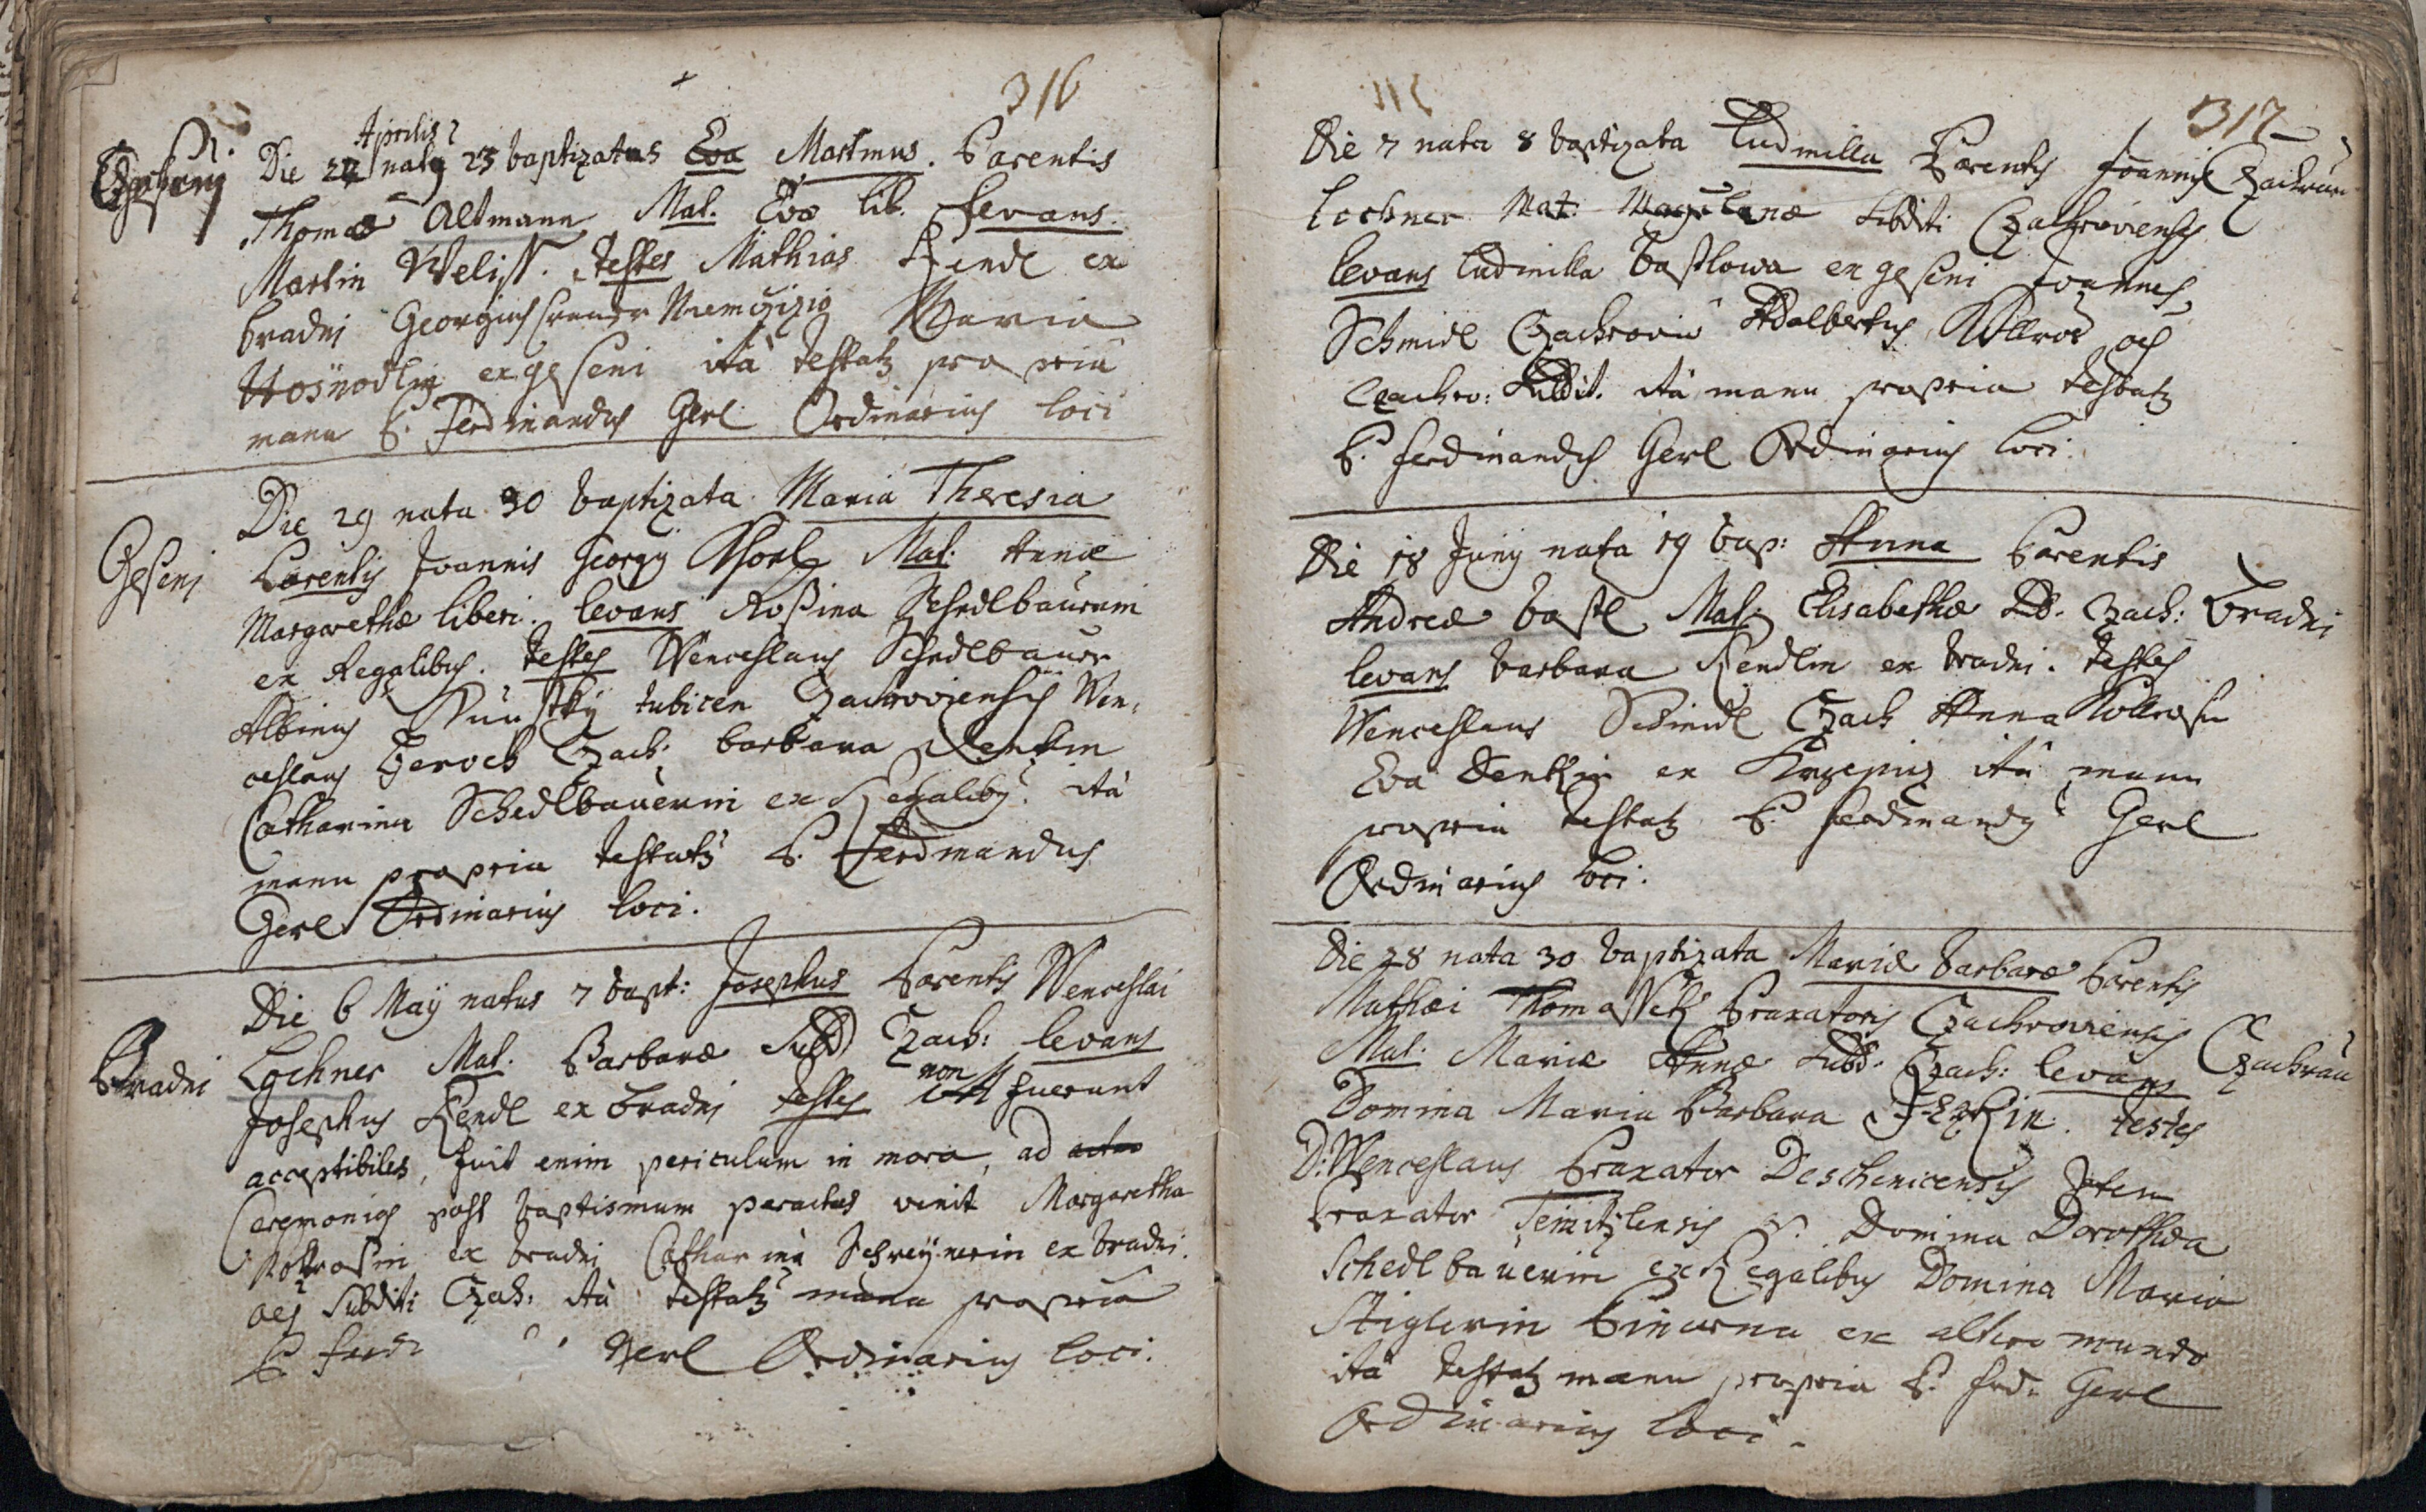 316
Geseni
Die 22 Aprilis naty 23 baptizatus Eva Martinus. Parentis
Thomæ Altmann Mat. Evæ lib. levans
Martin Weliss. testes Mathias Rendl ex
bradni Georgius Niemczizio Maria
ex geseni ita testatz propria
manu P. Ferdinandus Gerl Ordinarius loci
Geseni
Die 29 nata 30 baptizata Maria Theresia
Parentis Joannis Georgy Mat. Annæ
Margarethæ liberi. levans Rosina Schedlbaurin
ex Regalibus. testes Wenceslaus Schedlbaur
Albinus tubicen Czachroviensis Wen,
ceslaus Czach: barbara
Catharina Schedlbauerin ex Regaliby. ita
manu propria testatz P. Ferdinandus
Gerl Ordinarius loci.
Bradni
Die 6 Maÿ natus 7 bapt: Josephus Parentis Wenceslai
Lochner Mat. Barbaræ Subd Czach: levans
Josephus Rendl ex bradni testes non fuerunt
acceptibiles, fuit enim periculum in mora, ad
Ceremonias post baptismum peractas venit Margaretha
Kollrosin ex bradni Catharina Schreÿnerin ex bradni.
oes Subditi Czach: ita testatz manu propria
P. Ferd: Gerl Ordinarius loci.
317
Die 7 nata 8 baptizata Ludmilla Parentis Joannis Czachrau
Lochner Mat: Magdalenæ Subditi Czachroviensis
levans Ludmilla bastlowa ex geseni Joannes
Schmidl Czachrovio Adalbertus Kollros oes
Czachro: Subdit. ita manu propria testatz
P. Ferdinandus Gerl Ordinarius loci.
Die 18 Juny nata 19 bap: Anna Parentis
Andreæ bastl Mat: Elisabethæ Sub. Czach: Bradni
levans barbara Rendlin ex bradni. testes
Wenceslaus Schmidl Czach Anna Kollrosin
Eva ex ita manu
propria testatz P. Ferdinandy Gerl
Ordinarius loci.
Die 28 nata 30 baptizata Mariæ barbaræ Parentis
Mathæi Thomassek Braxatoris Czachroviensis
Mat. Mariæ Annæ Subd. Czach: levans Czachrau
Domina Maria Barbara testes
D: Wenceslaus Braxator Deschenicensis Item
braxator Domina Dorothea
Schedlbauerin ex Regalibus Domina Maria
Stiglerin ex altero mundo
ita testatz manu propria P. Ferd: Gerl
Ordinarius loci.